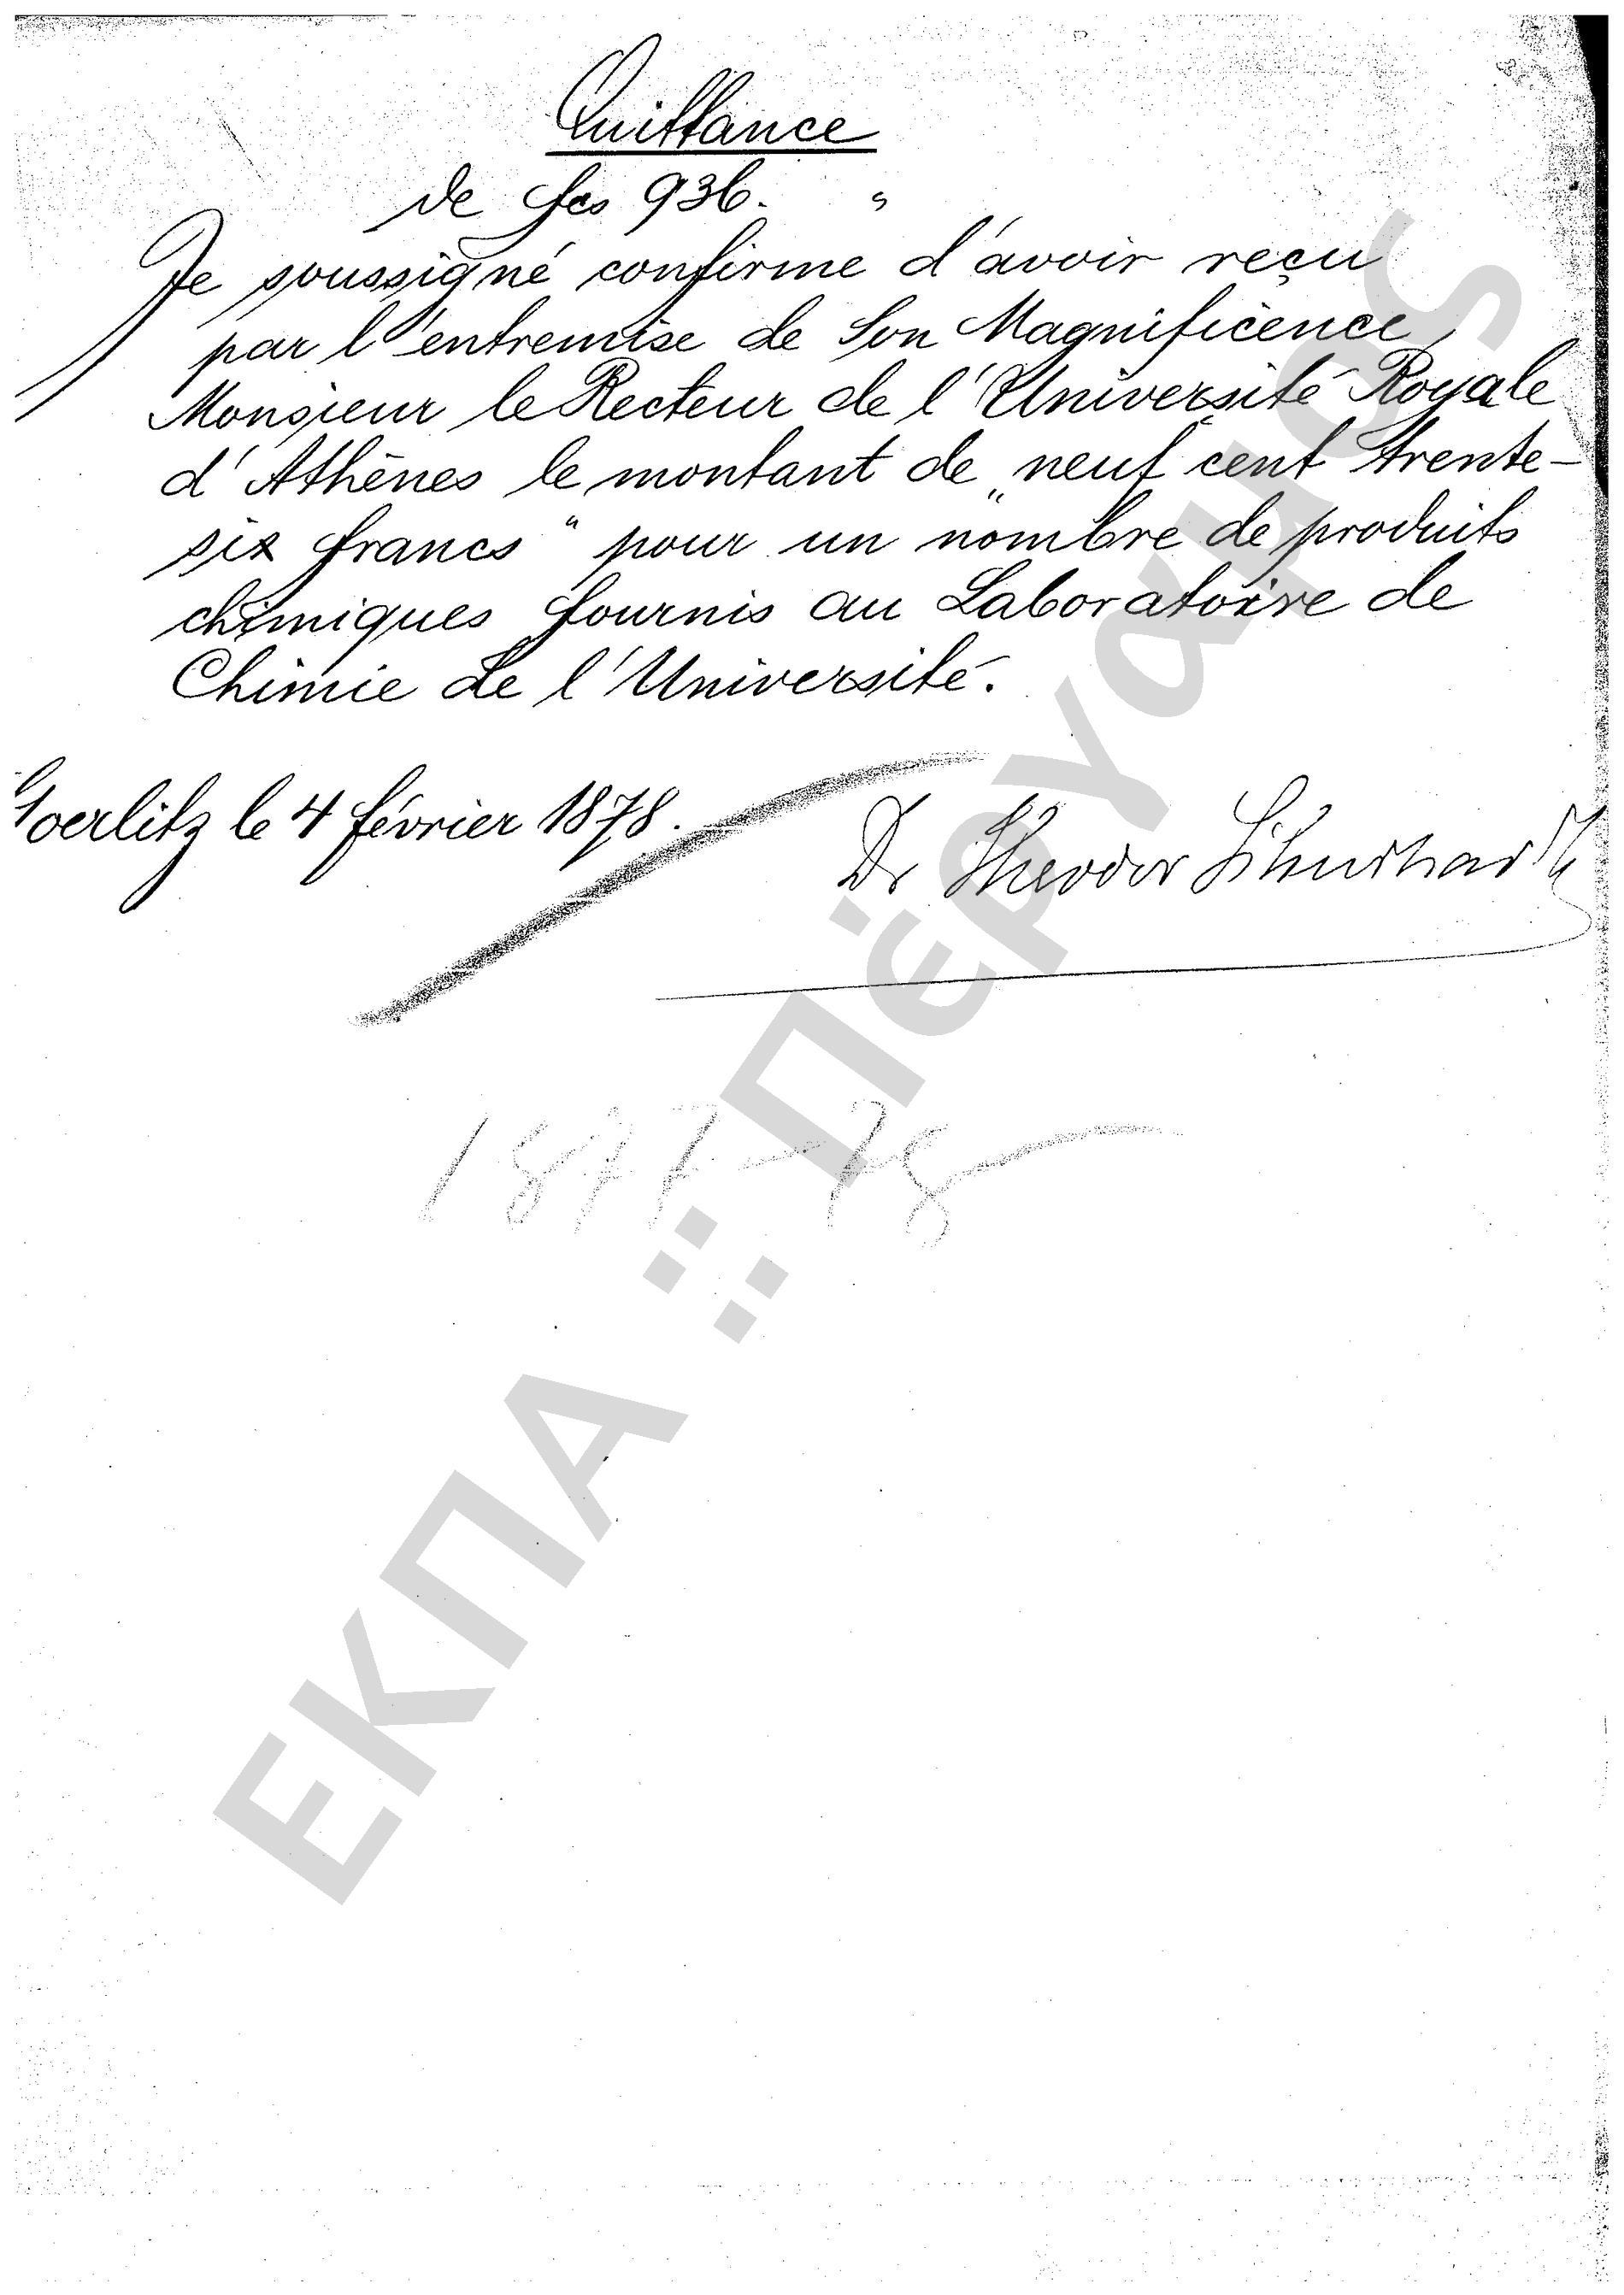 Quittance
de fcs 936. "
Je soussigné confirme d'avoir reçu
par l'entremise de Son Magnificence
Monsieur le Recteur de l'Université Royale
d'Athênes le montant de „neuf cent trente-
six francs" pour un nombre de produits
chimiques fournis au Laboratoire de
Chimie de l'Université.
Goerlitz le 4 février 1878.
Dr Theodor Schuchardt
1877-78
ΕΚΠΑ :: Πέργαμος